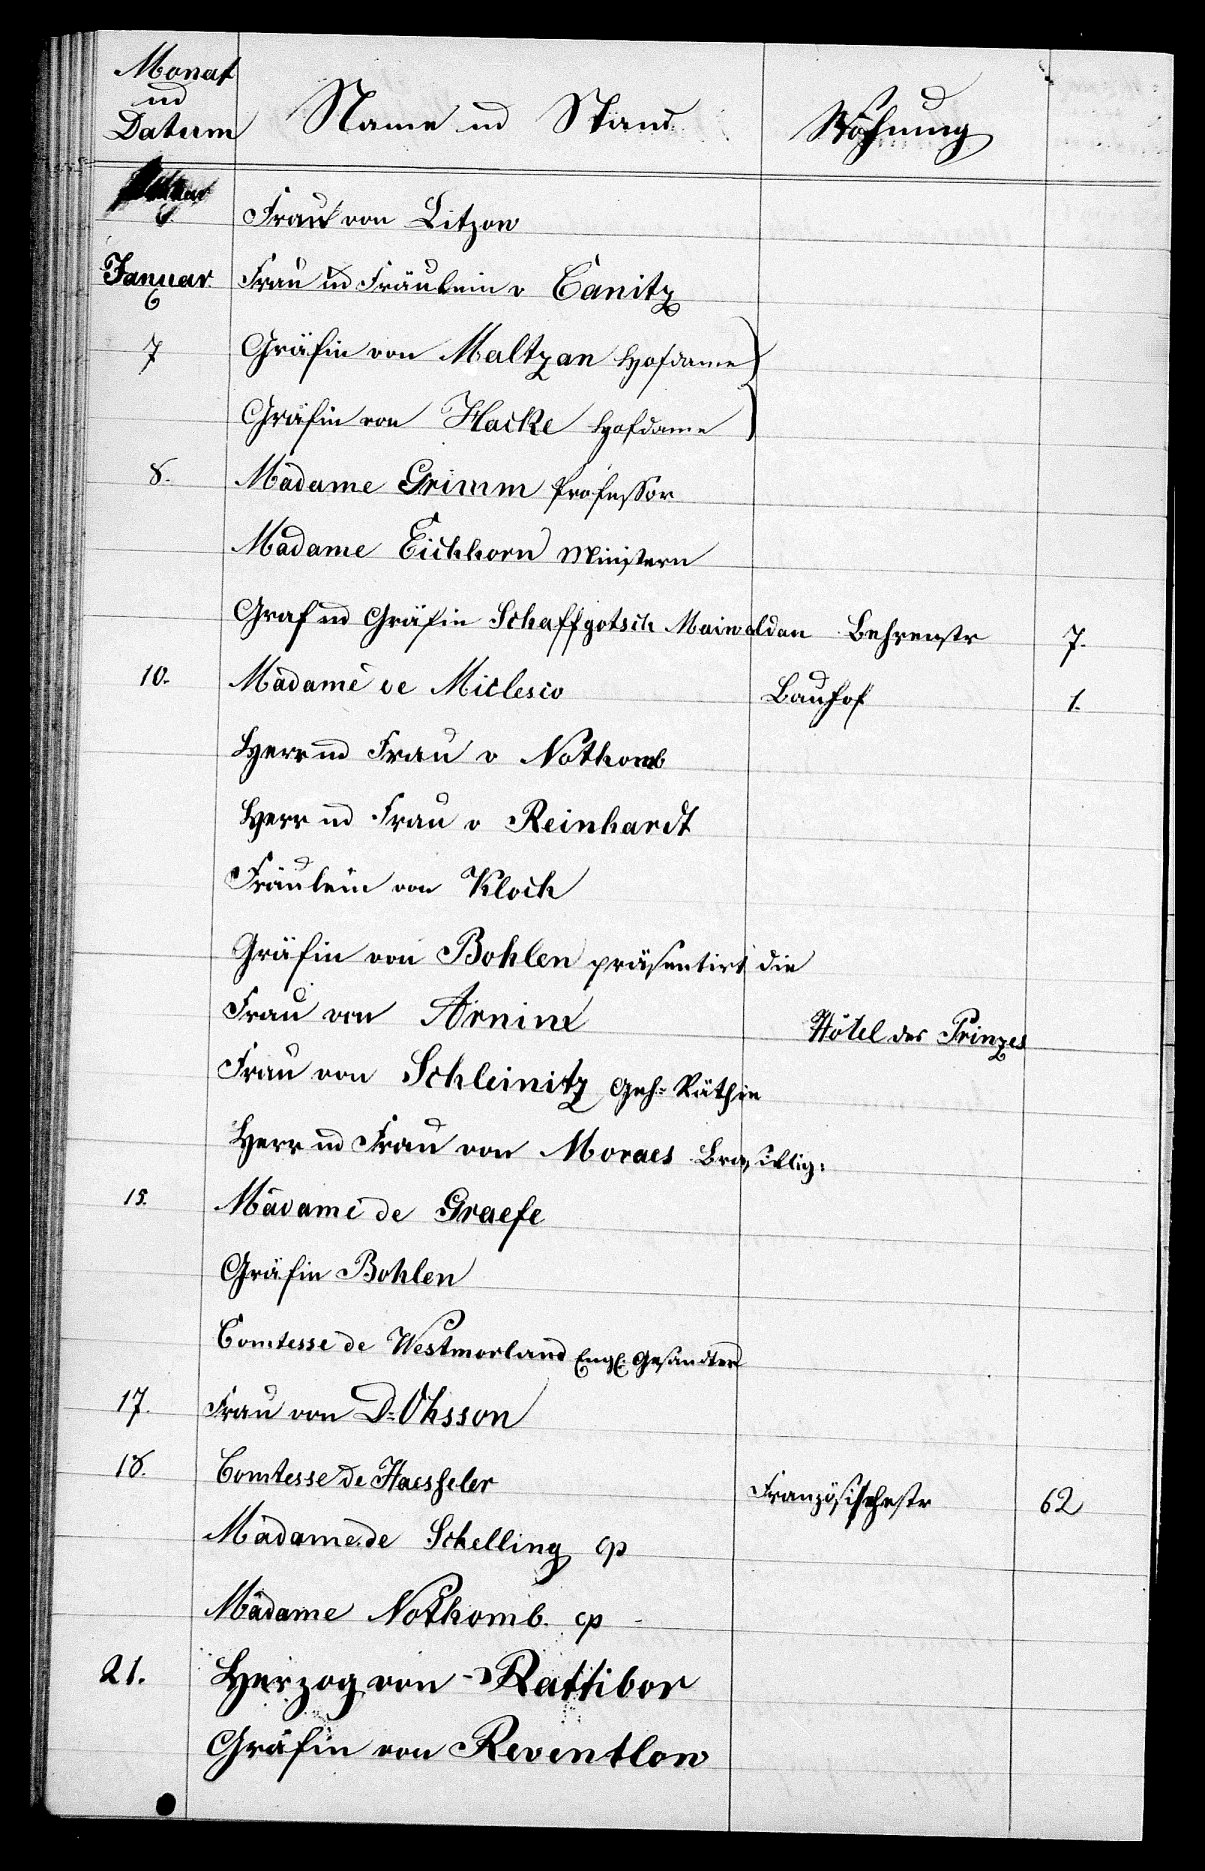 Monat
und
Datum
Name und Stand
Wohnung
6.
Frau von Litzow
Januar
6
Frau und Fräulein v Canitz
7 Gräfin von Maltzan Hofdame
Gräfin von Hacke Hofdame
8. Madame Grimm Professor
Madame Eichhorn Ministern
Graf und Gräfin Schaffgotsch Maiwaldau Behrenstr 7.
10. Madame de Miclesco Bauhof 1.
Herr und Frau v Nothomb
Herr und Frau v Reinhardt
Fräulein von Kloch
Gräfin von Bohlen präsentirt die
Frau von Arnim Hôtel des Princes
Frau von Schleinitz Geh: Räthin
Herr und Frau von Moraes Brasilig:
15. Madame de Graefe
Gräfin Bohlen
Comtesse de Westmorland Engl: Gesandten
17. Frau von D'Ohsson
18. Comtesse de Haeseler Französischestr 62
Madame de Schelling cp
Madame Nothomb. cp
21. Herzog von Rattibor
Gräfin von Reventlow